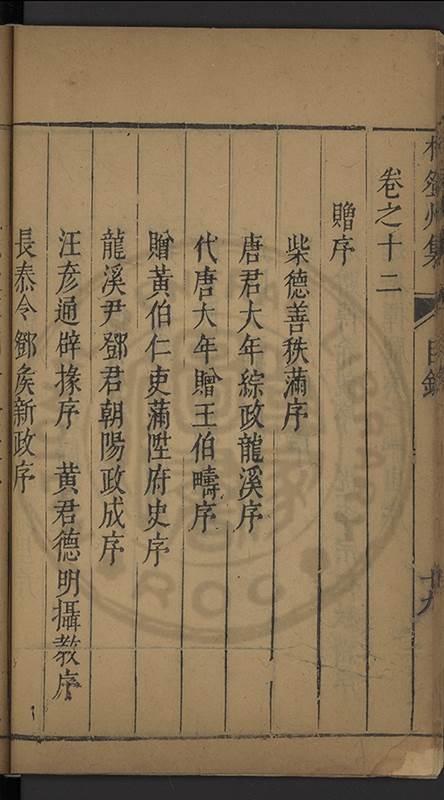 卷之十二
贈序
柴德善秩滿序
唐君大年綜政龍溪序
代唐大年贈王伯疇序
贈黃伯仁吏滿陞府史序
龍溪尹鄧君朝陽政成序
汪彥通辟掾序　黃君德明攝教序
長泰令鄧矦新政序
州集
目錄
十九
ROC